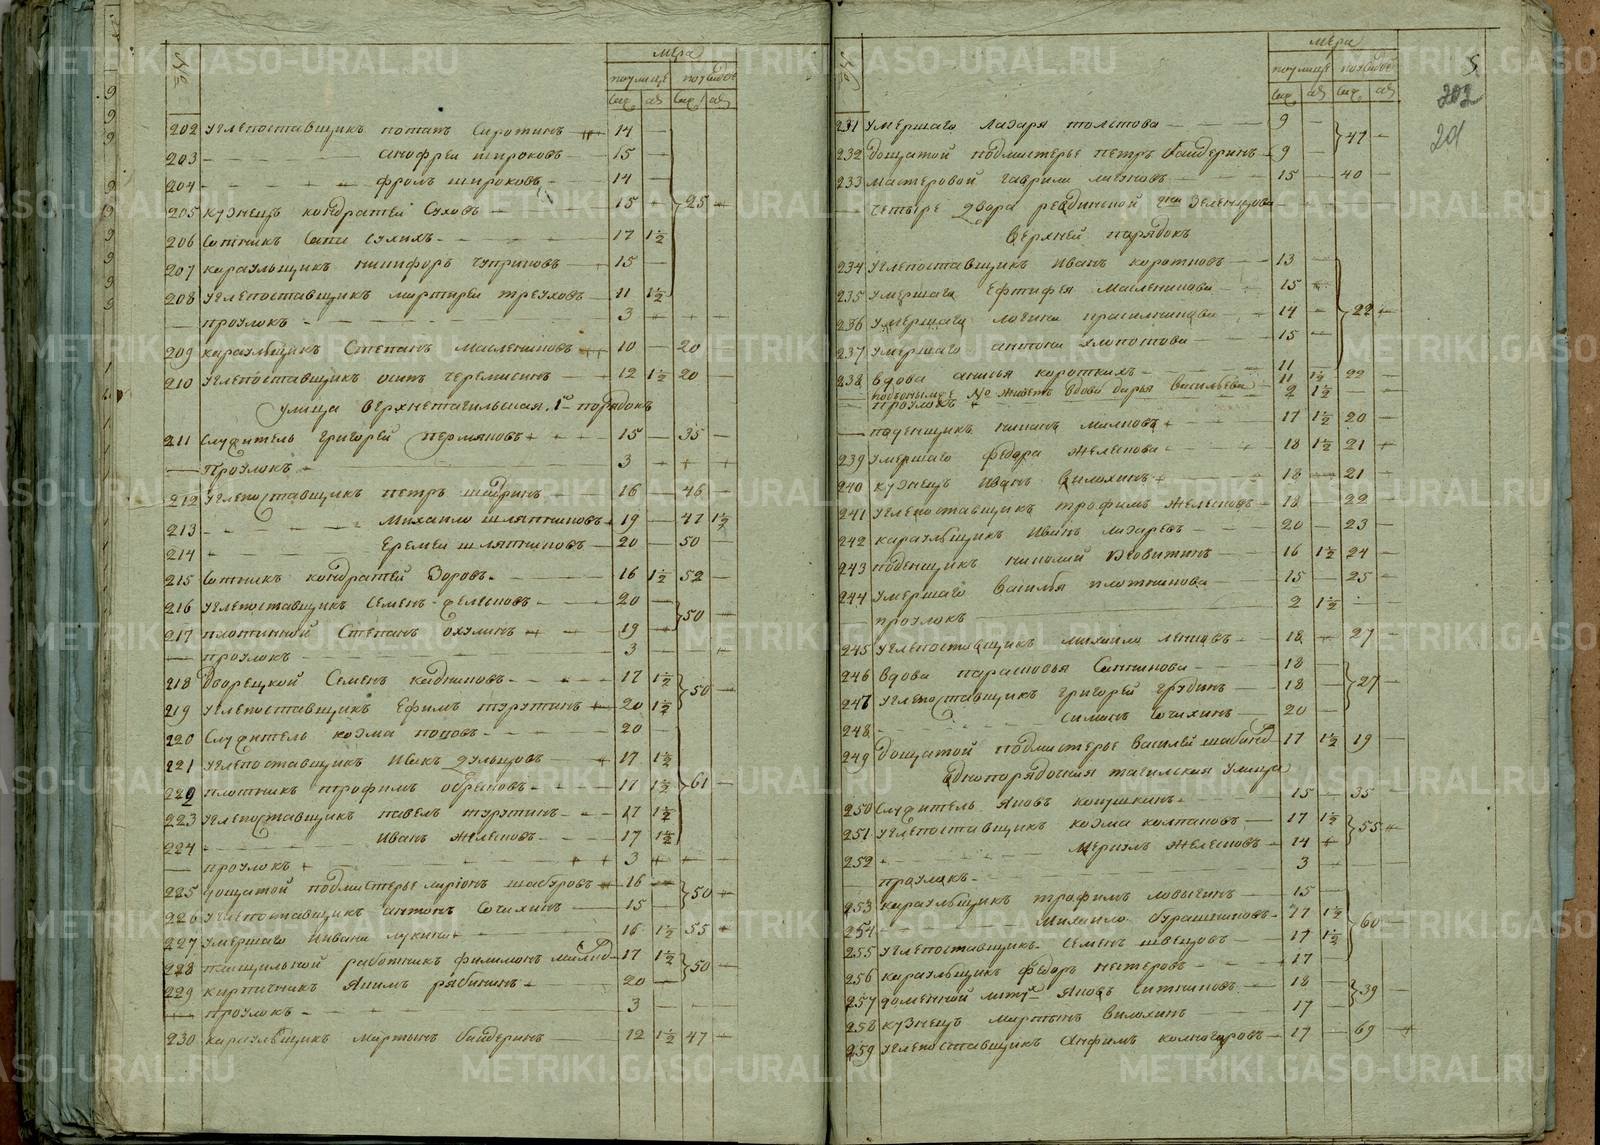 мера
поулице поусадьбе
саж. ар. саж. ар.
202 углепоставщикъ потапъ Сиротинъ 14
203 Анофрей широковъ 15
204 фролъ широковъ 14
205 кузнецъ кондратей Суховъ 15 25
206 Сотникъ Сухихъ 17 1½
207 караульщикъ никифоръ Чуприновъ 15
208 углепоставщикъ 11 1½
проулокъ 3
209 караульщикъ Степанъ маслениковъ 10 20
210 углепоставщикъ осипъ Черемисинъ 12 1½ 20
улица верхнетагильская 1й порядокъ
211 Служитель григорей пермяковъ 15 35
проулокъ 3
212 углепоставщикъ петръ шадринъ 16 46
213 Михайло шляпниковъ 19 47 1½
214 Еремей шляпниковъ 20 50
215 Сотникъ кондратей Зоровъ 16 1½ 52
216 углепоставщикъ Семенъ 20
217 плотинной Степанъ охулинъ 19 50
проулокъ 3
218 дворецкой Семенъ кадниковъ 17 1½
219 углепоставщикъ Ефимъ турутинъ 20 1½ 50
220 Служитель козма поповъ 20
221 углепоставщикъ 17 1½
222 плотникъ трофимъ 17 1½ 61
223 углепоставщикъ павелъ турутинъ 17 1½
224 Иванъ Желесновъ 17 1½
проулокъ 3
225 дощатой подмастерье ларионъ шабуровъ 16
226 углепоставщикъ антонъ Сочихинъ 15 50
227 умершаго ивана лукина 16 1½ 55
228 работникъ филимонъ 17 1½
229 кирпичникъ Якимъ рябининъ 20 50
проулокъ 3
230 караульщикъ Мартынъ байдеринъ 12 1½ 47
мера
поулице поусадьбе
саж. ар. саж. ар.
5
202
201
231 умершаго Лазаря толстова 9
232 дощатой подмастерье петръ байдеринъ 9 47
233 мастеровой гаврила 15 40
Четыре двора
верхней порядокъ
234 углепоставщикъ Иванъ коротковъ 13
235 умершаго Ефтифея Масленикова 15
236 умершаго логина красильникова 14 22
237 умершаго антона хлопотова 15
238 вдова анисья короткихъ 11 22
№ живетъ вдова дарья васильева 11 1½
проулокъ 2 1½
поденщикъ 17 1½ 20
239 умершаго федора Желеснова 18 1½ 21
240 кузнецъ Иванъ вилохинъ 18 21
241 углепоставщикъ трофимъ Желесновъ 18 22
242 караульщикъ Иванъ лазаревъ 20 23
243 поденщикъ николай 16 1½ 24
244 умершаго василья плотникова 15 25
проулокъ 2 1½
245 углепоставщикъ михайло 18 27
246 вдова парасковья 18
247 углепоставщикъ григорей 18 27
248 симонъ Сочихинъ 20
249 дощатой подмастерье василей 17 1½ 19
однопорядоская тагильская улица
250 Служитель Яковъ кокушкинъ 15 35
251 углепоставщикъ козма колпаковъ 17 1½ 55
252 меркулъ Желесновъ 14
проулокъ 3
253 караульщикъ трофимъ ловыгинъ 15
254 Михайло бурашниковъ 17 1½ 60
255 углепоставщикъ Семенъ швецовъ 17 1½
256 караульщикъ федоръ нестеровъ 17
257 доменной Яковъ Ситниковъ 18 39
258 кузнецъ мартынъ вилохинъ 17
259 углепоставщикъ Анфимъ колногоровъ 17 69
METRIKI.GASO-URAL.RU